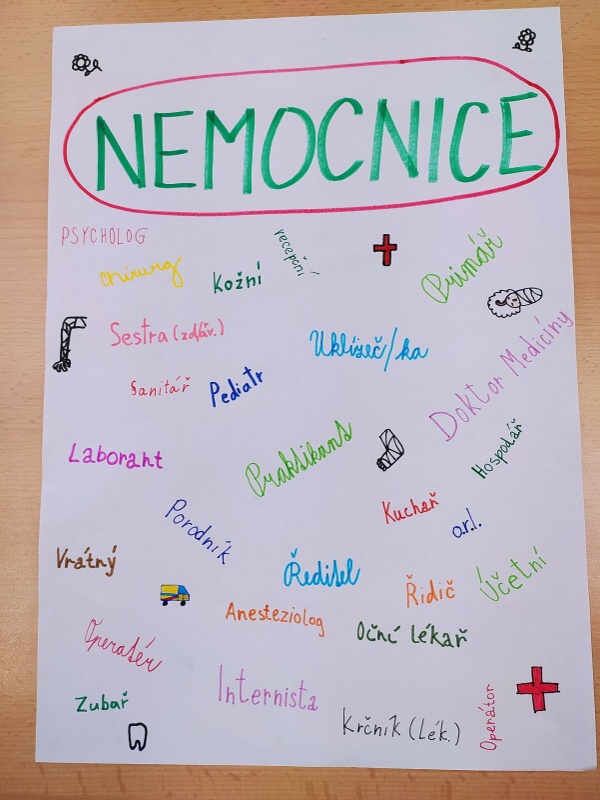 NEMOCNICE
PSYCHOLOG
chirurg
Kožní
recepční
Primář
Sestra (zdrav.)
Uklízeč/ka
Sanitář
Pediatr
Doktor Medicíny
Laborant
Praktikant
Hospodář
Kuchař
o.r.l.
Porodník
Vrátný
Ředitel
Řidič
Účetní
Anesteziolog
Oční lékař
Operatér
Internista
Zubař
Krčník (Lék.)
Operátor